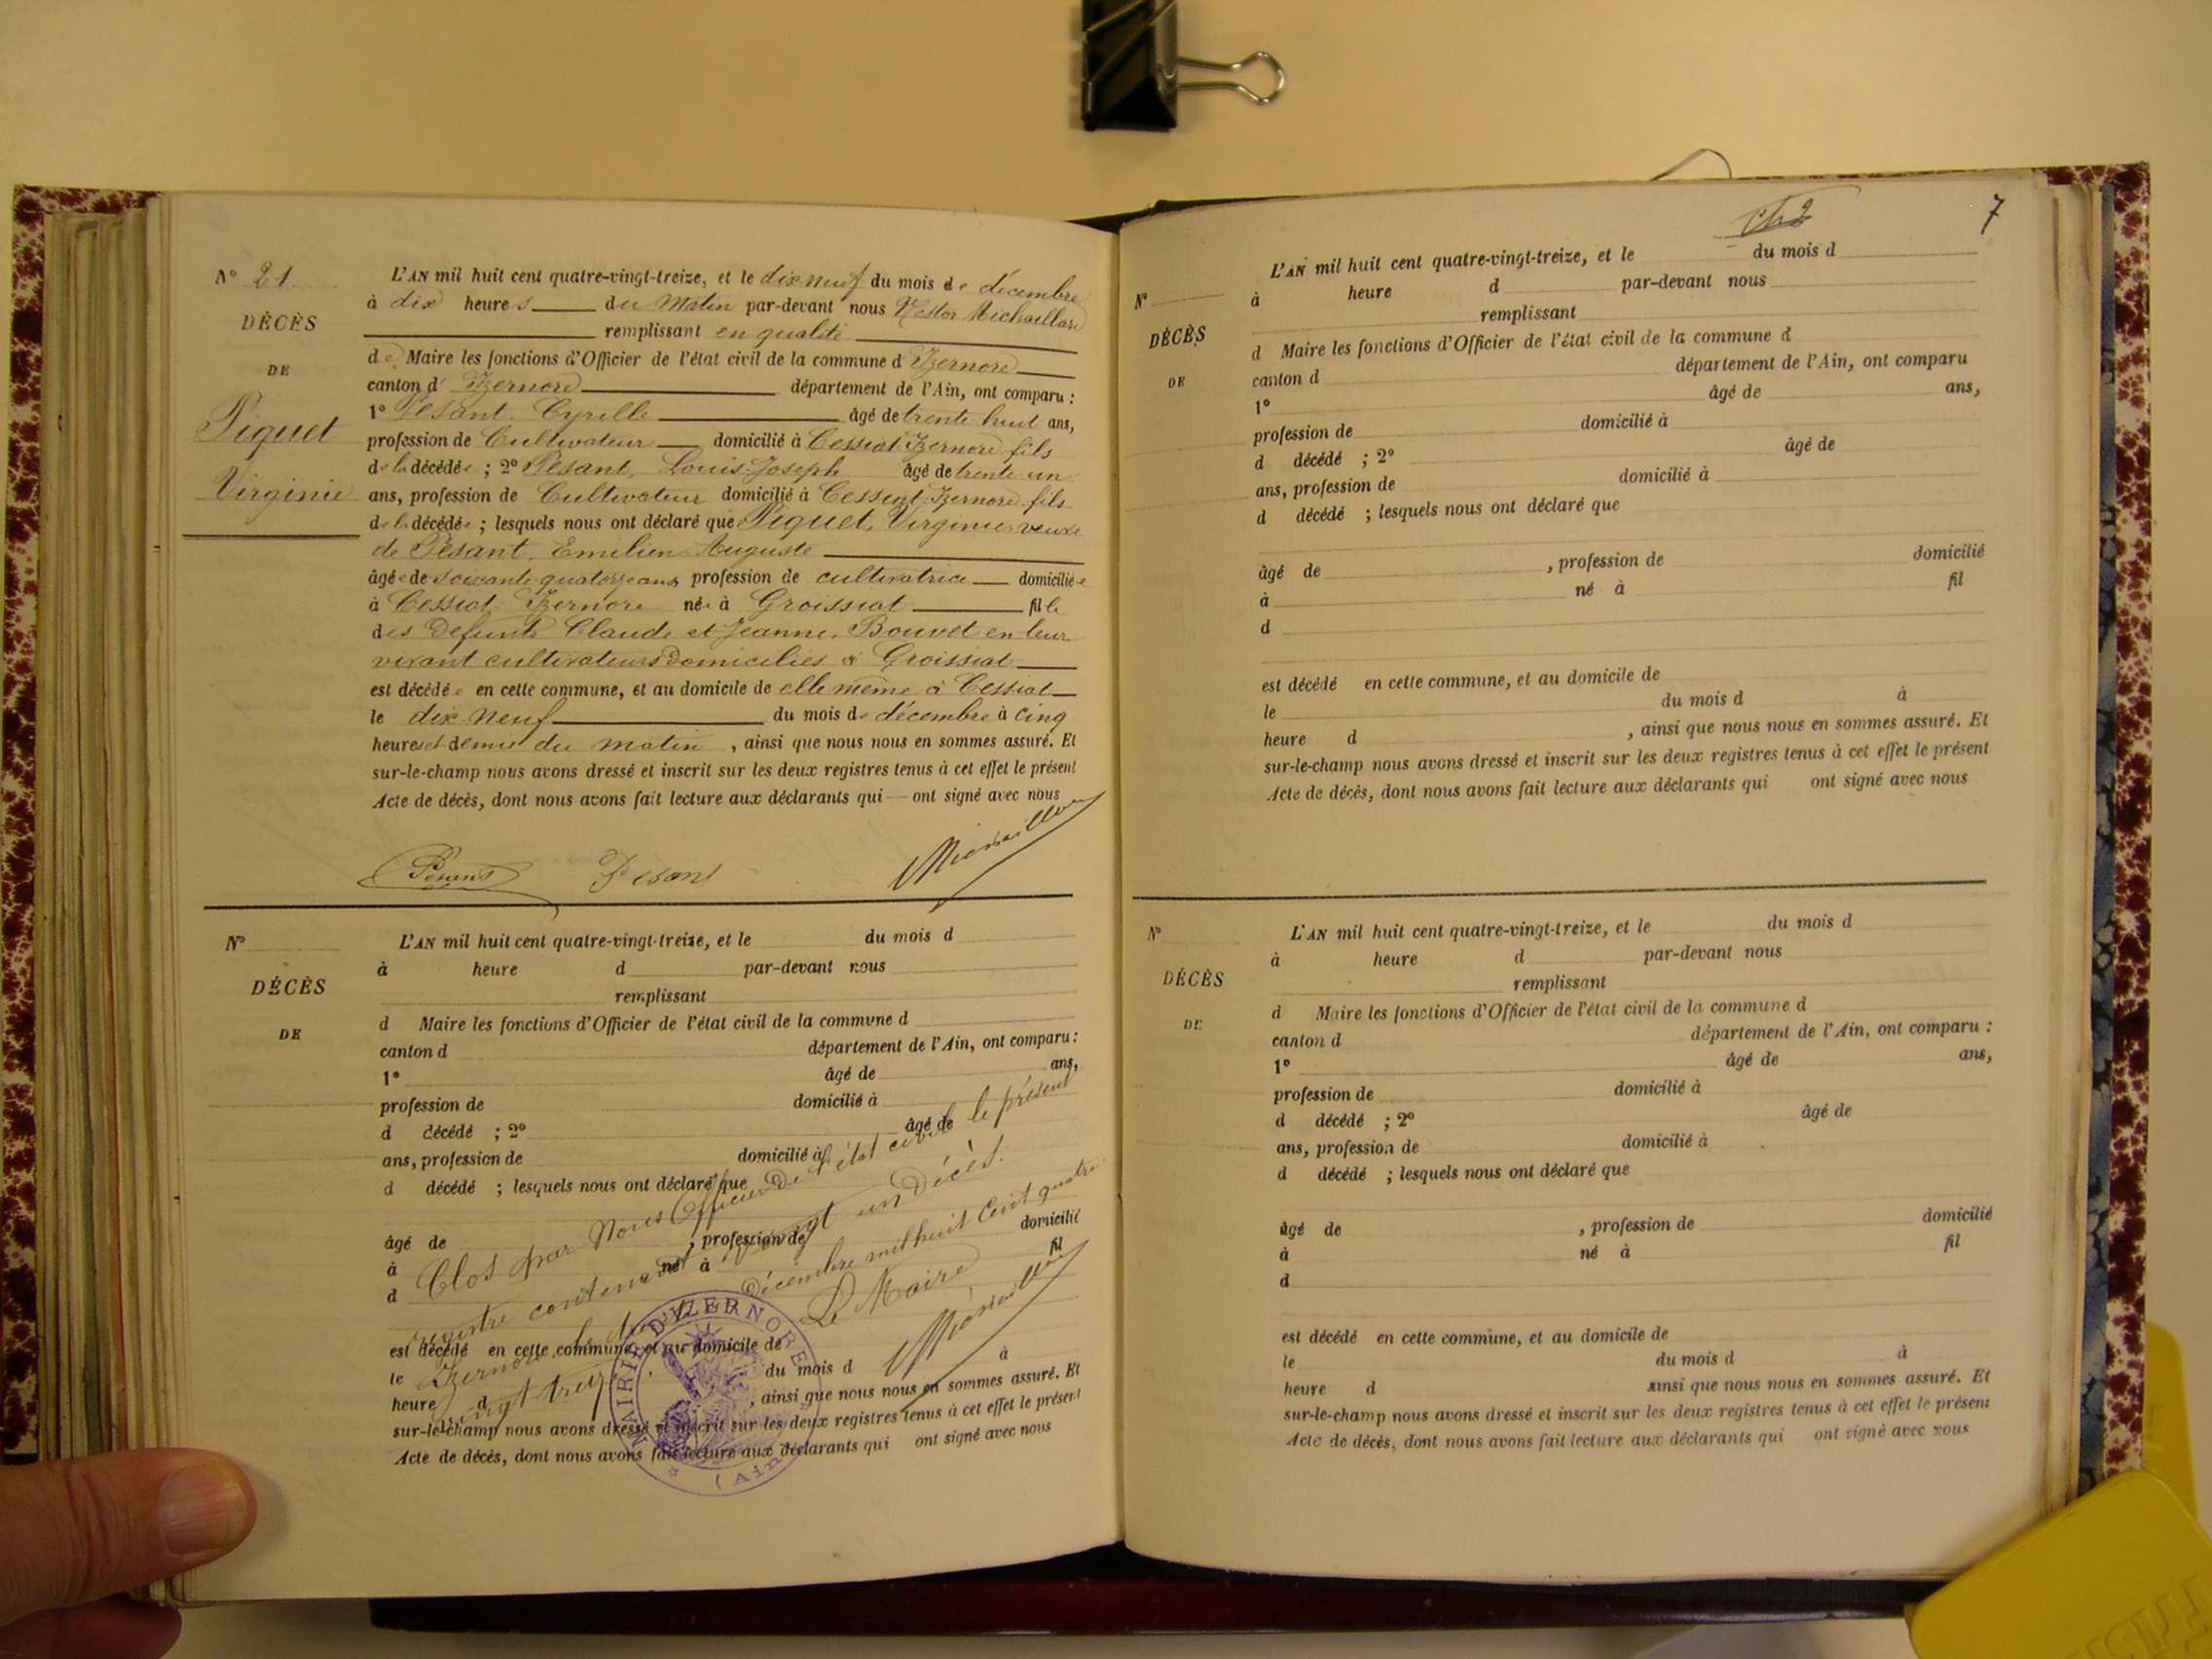 N° 21
DÉCÈS
DE
Piquet
Virginie
L'AN mil huit cent quatre-vingt-treize, et le dix neuf du mois de décembre
à dix heures du matin par-devant nous Nestor Michaillard
remplissant en qualité
de Maire les fonctions d'Officier de l'état civil de la commune d'Izernore
canton d'Izernore département de l'Ain, ont comparu :
1° Pesant Cyrille âgé de trente huit ans,
profession de Cultivateur domicilié à Cessiat Izernore fils
de la décédée ; 2° Pesant, Louis Joseph âgé de trente un
ans, profession de Cultivateur domicilié à Cessiat Izernore fils
de la décédée ; lesquels nous ont déclaré que Piquet, Virginie veuve
de Pesant, Emilien Auguste
âgée de soixante quatorze ans profession de cultivatrice domiciliée
à Cessiat Izernore née à Groissiat fille
des Defunts Claude et Jeanne Bouvet en leur
vivant cultivateurs domiciliés à Groissiat
est décédée en cette commune, et au domicile de elle même à Cessiat
le dix neuf du mois de décembre à cinq
heures et demie du matin, ainsi que nous nous en sommes assuré. Et
sur-le-champ nous avons dressé et inscrit sur les deux registres tenus à cet effet le présent
Acte de décès, dont nous avons fait lecture aux déclarants qui — ont signé avec nous
Pesant Pesant
N°
DÉCÈS
DE
L'AN mil huit cent quatre-vingt-treize, et le du mois d
à heure d par-devant nous
remplissant
d Maire les fonctions d'Officier de l'état civil de la commune d
canton d département de l'Ain, ont comparu :
1° âgé de ans,
profession de domicilié à
d décédé ; 2° âgé de
ans, profession de domicilié à
d décédé ; lesquels nous ont déclaré que
âgé de , profession de domicilié
à né à fil
d
est décédé en cette commune, et au domicile de
le du mois d à
heure d , ainsi que nous nous en sommes assuré. Et
sur-le-champ nous avons dressé et inscrit sur les deux registres tenus à cet effet le présent
Acte de décès, dont nous avons fait lecture aux déclarants qui ont signé avec nous
Clos par Nous Officier de l'état civil le présent
registre contenant vingt un Décès.
Izernore le décembre mil huit cent quatre
vingt treize
Le Maire
MAIRIE D'IZERNORE
(Ain)
7
N°
DÉCÈS
DE
L'AN mil huit cent quatre-vingt-treize, et le du mois d
à heure d par-devant nous
remplissant
d Maire les fonctions d'Officier de l'état civil de la commune d
canton d département de l'Ain, ont comparu
1° âgé de ans,
profession de domicilié à
d décédé ; 2° âgé de
ans, profession de domicilié à
d décédé ; lesquels nous ont déclaré que
âgé de , profession de domicilié
à né à fil
d
est décédé en cette commune, et au domicile de
le du mois d à
heure d , ainsi que nous nous en sommes assuré. Et
sur-le-champ nous avons dressé et inscrit sur les deux registres tenus à cet effet le présent
Acte de décès, dont nous avons fait lecture aux déclarants qui ont signé avec nous
N°
DÉCÈS
DE
L'AN mil huit cent quatre-vingt-treize, et le du mois d
à heure d par-devant nous
remplissant
d Maire les fonctions d'Officier de l'état civil de la commune d
canton d département de l'Ain, ont comparu :
1° âgé de ans,
profession de domicilié à
d décédé ; 2° âgé de
ans, profession de domicilié à
d décédé ; lesquels nous ont déclaré que
âgé de , profession de domicilié
à né à fil
d
est décédé en cette commune, et au domicile de
le du mois d à
heure d ainsi que nous nous en sommes assuré. Et
sur-le-champ nous avons dressé et inscrit sur les deux registres tenus à cet effet le présent
Acte de décès, dont nous avons fait lecture aux déclarants qui ont signé avec nous